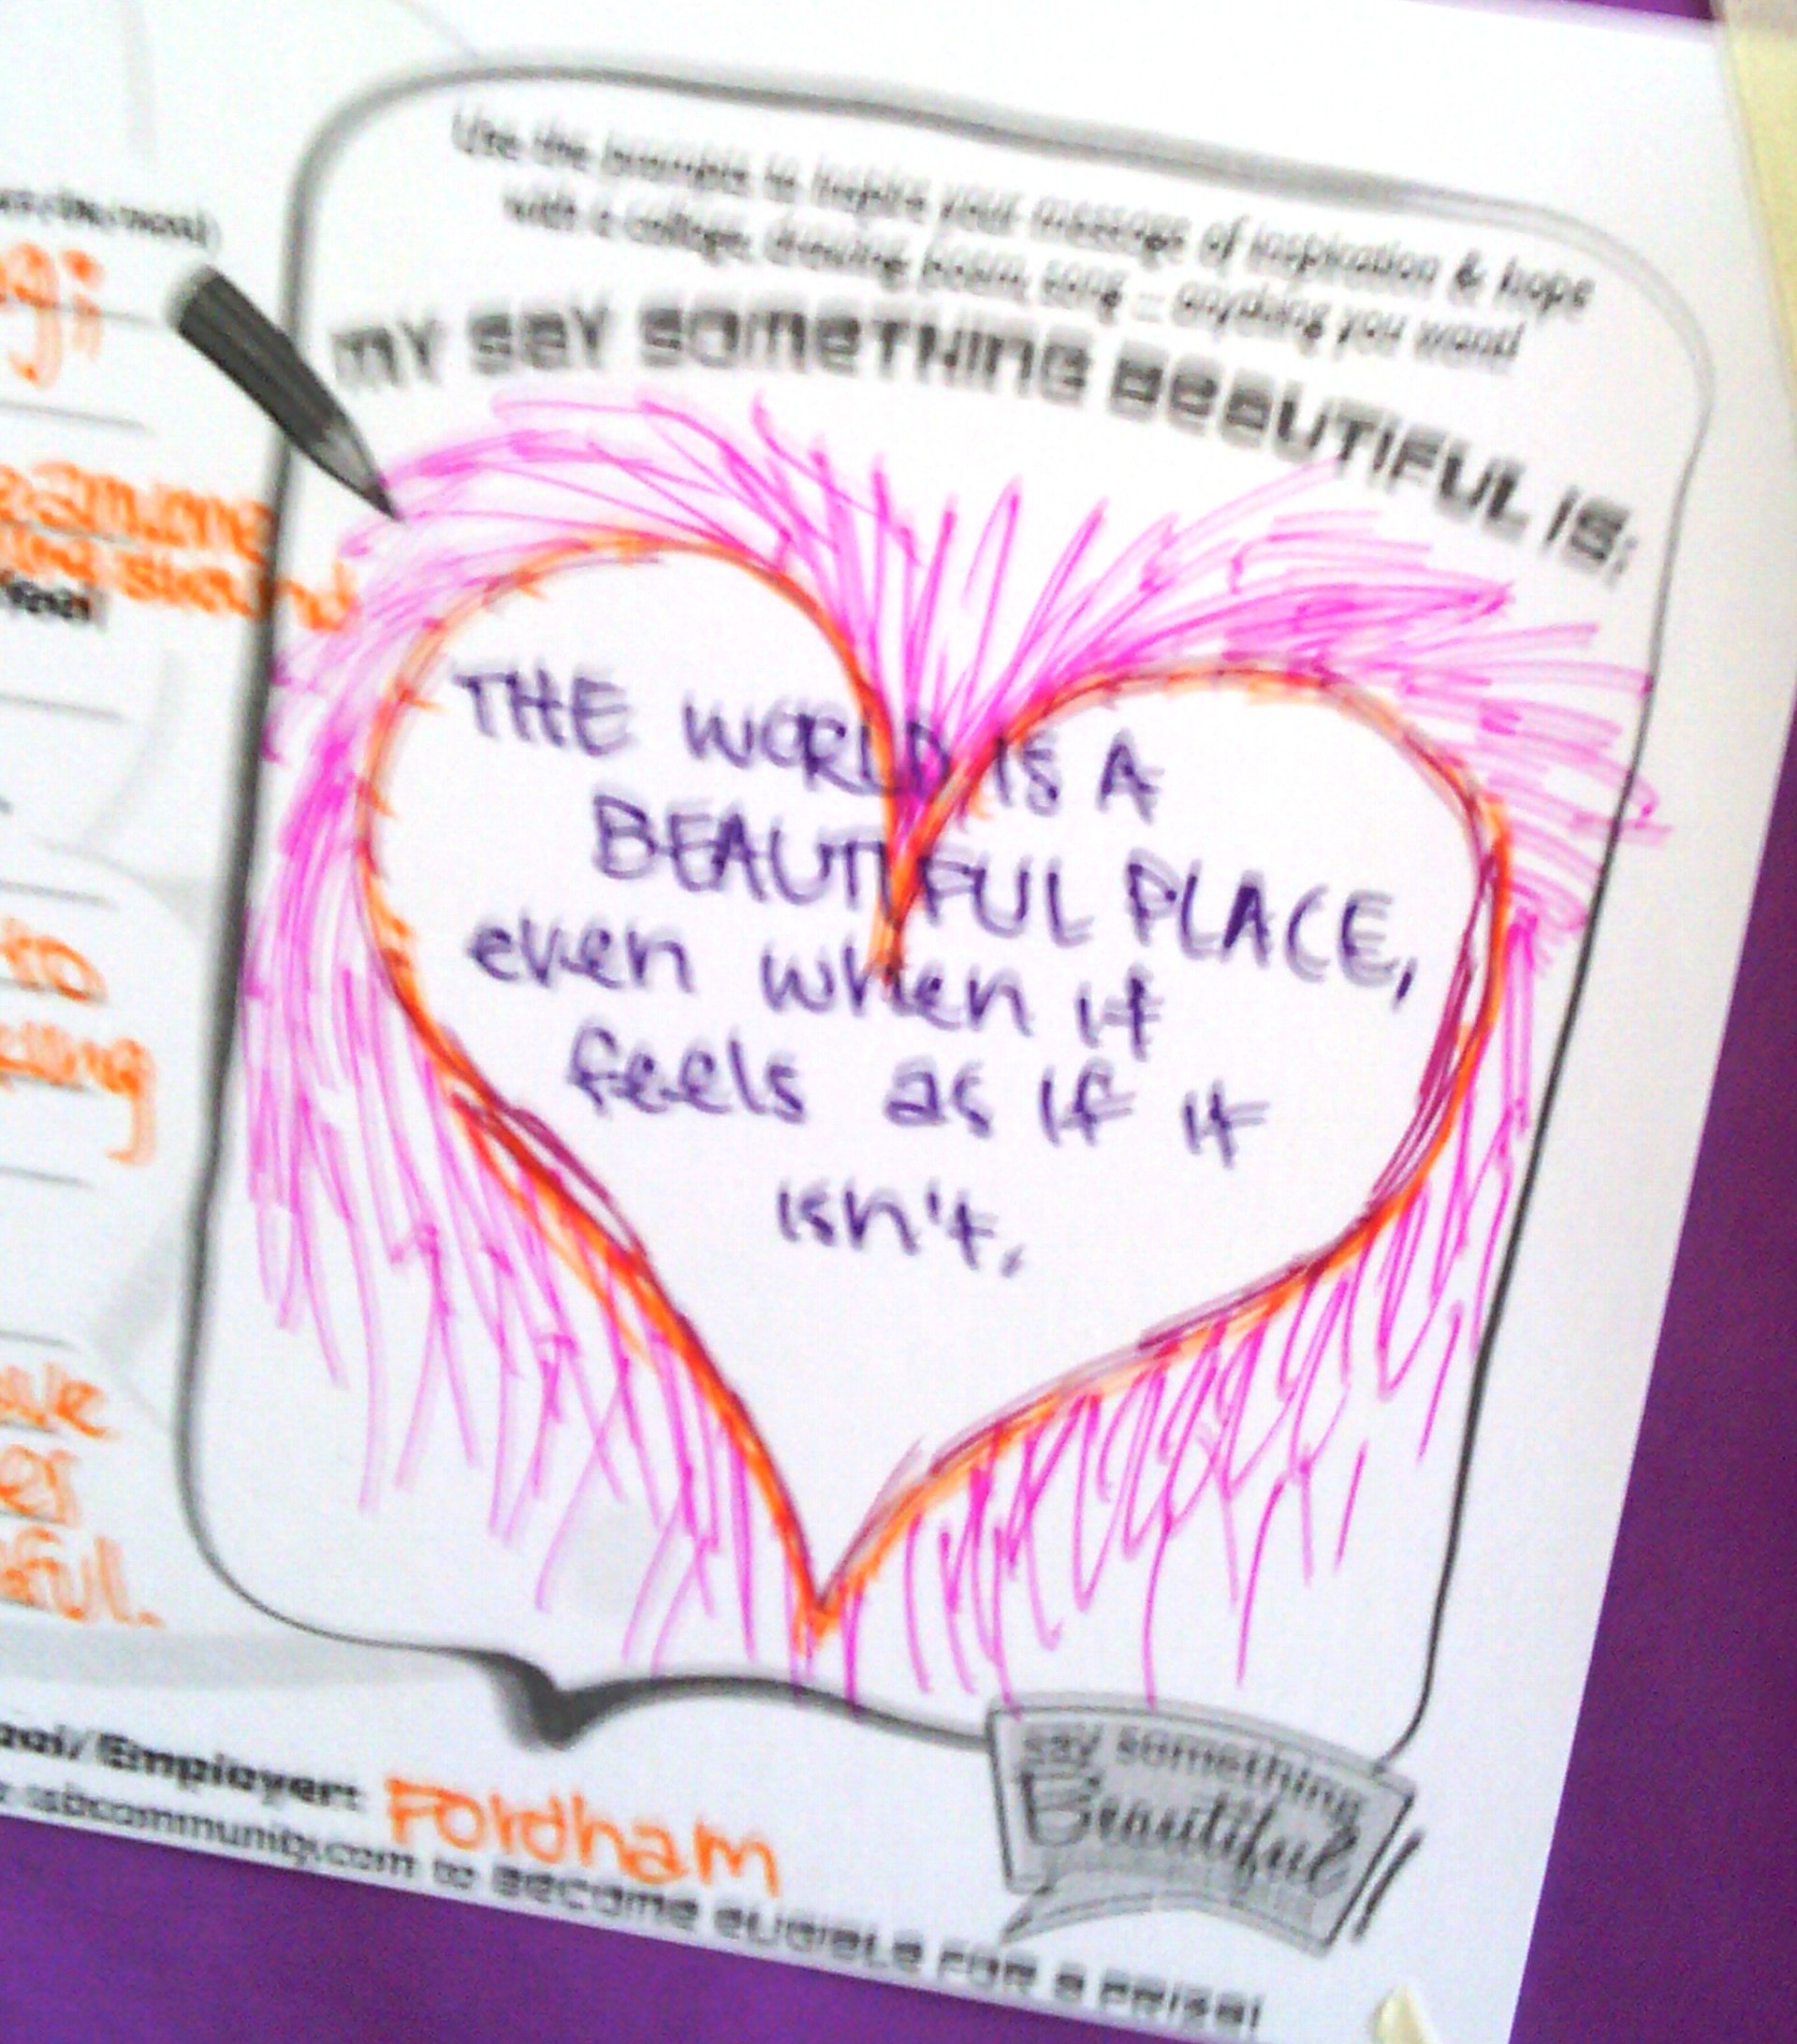 Use the prompts to inspire your message of inspiration & hope
with a collage, drawing, poem, song – anything you want!
MY SAY SOMETHING BEAUTIFUL IS:
THE WORLD IS A
BEAUTIFUL PLACE,
even when it
feels as if it
isn't.
so
Employer: Fordham
ssbcommunity.com to BECOME ELIGIBLE FOR A PRIZE!
say something
Beautiful